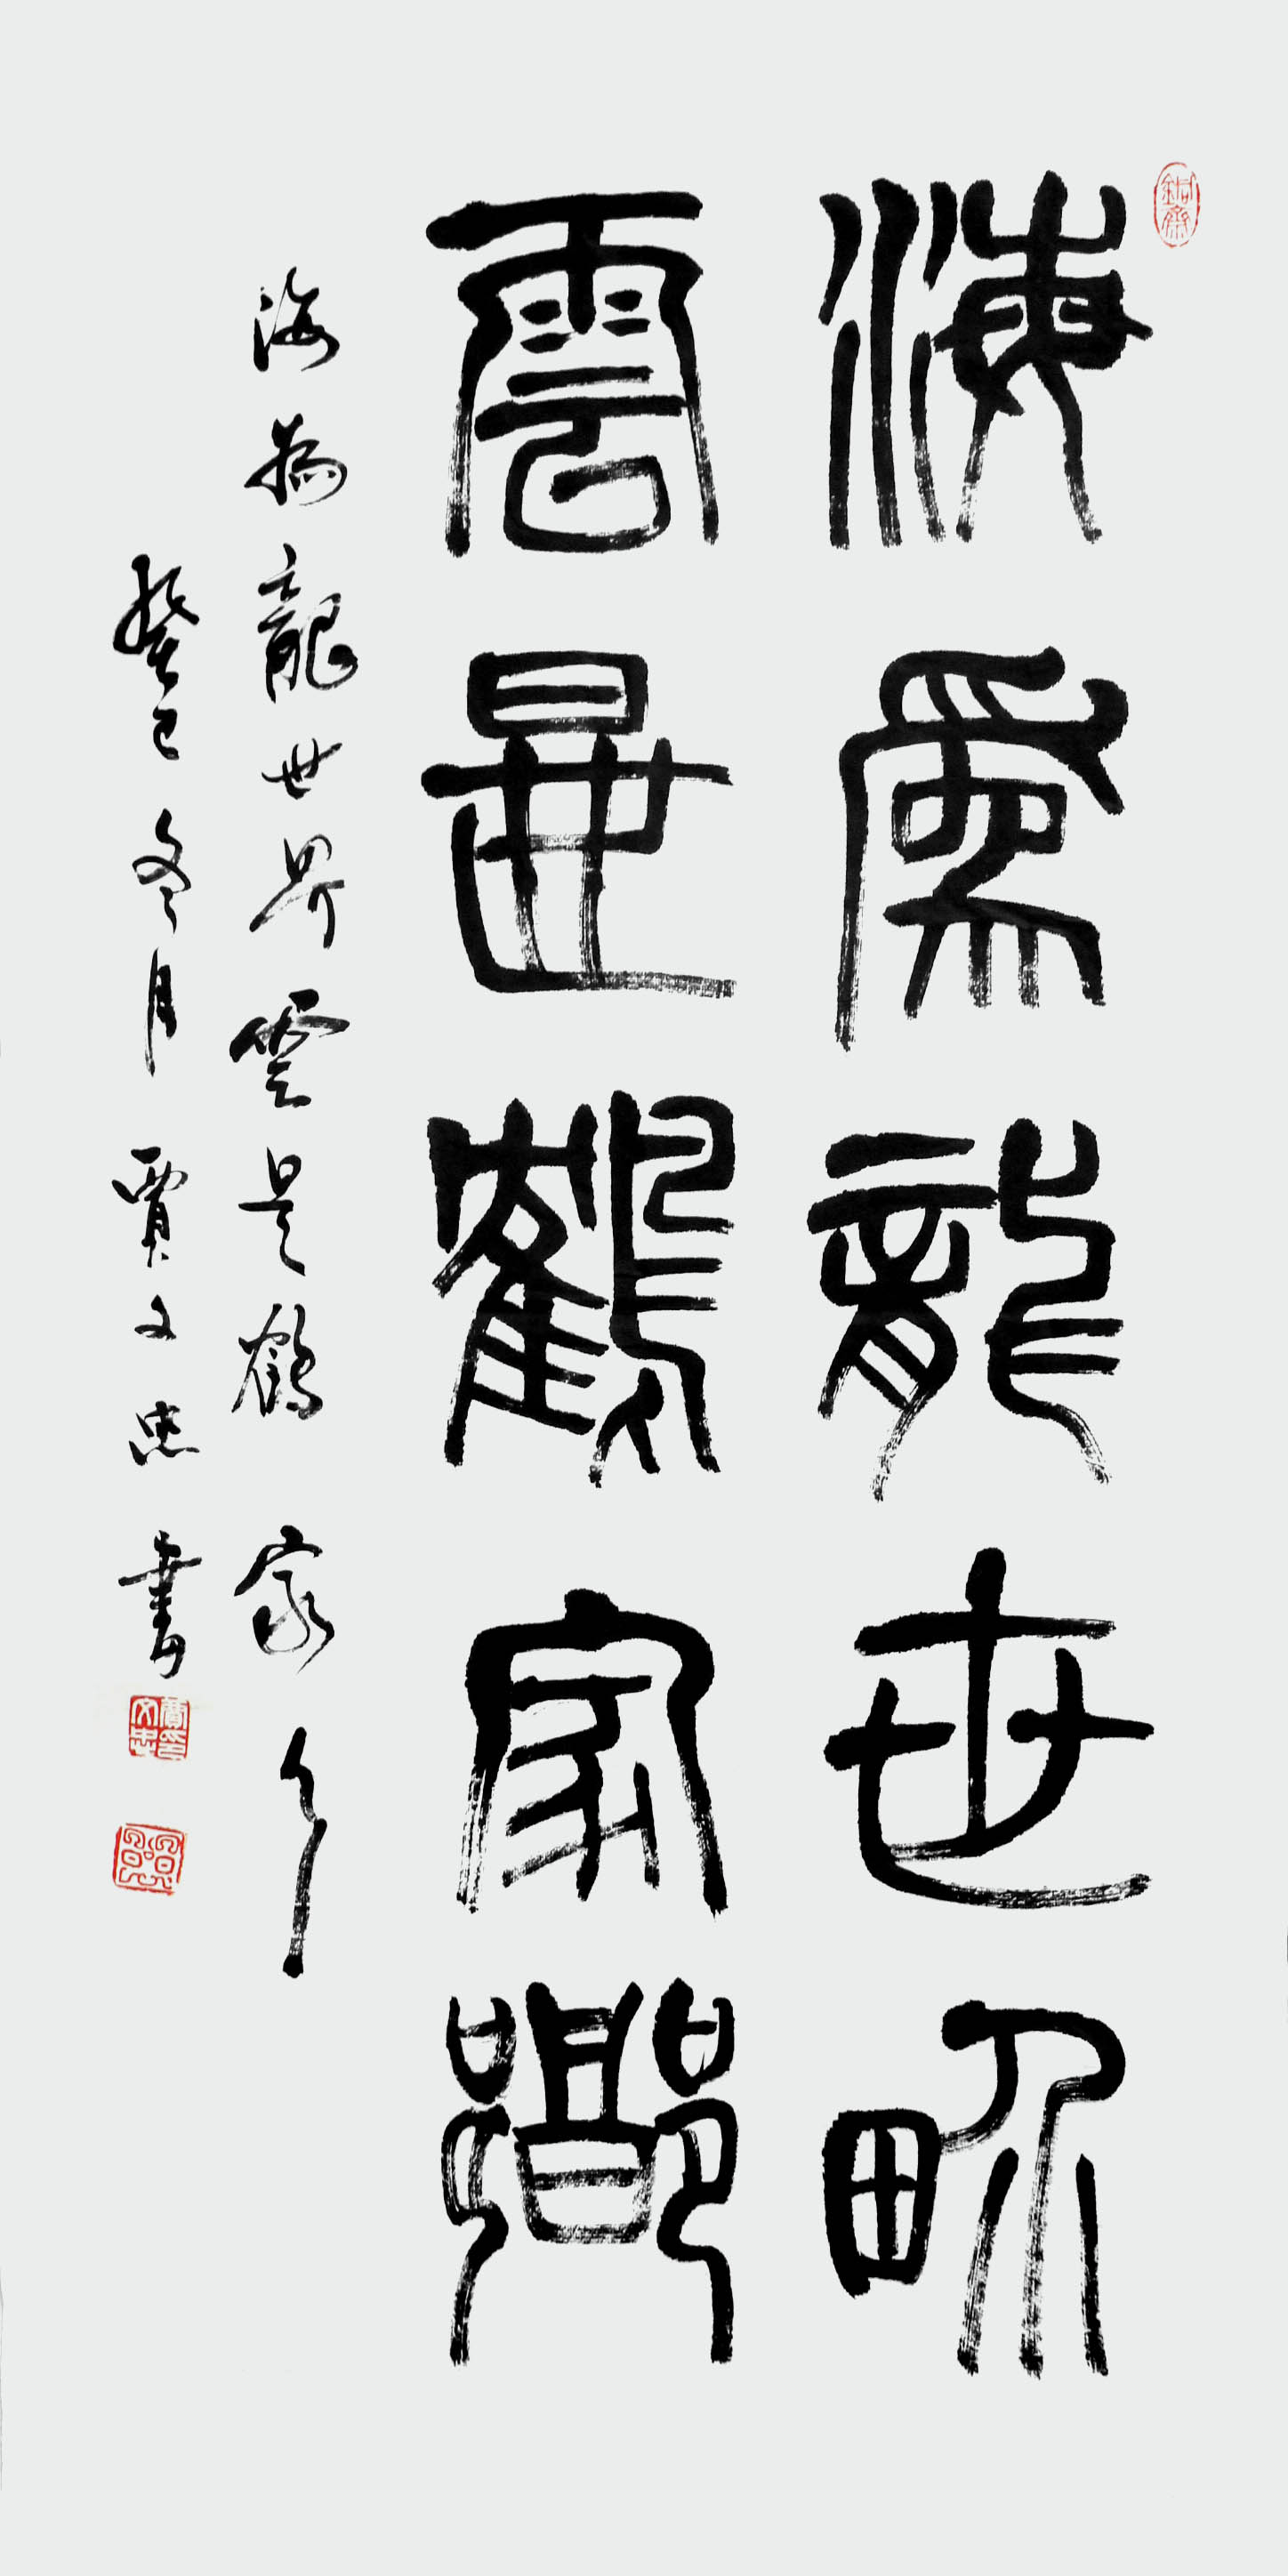 海為龍世界
雲是鶴家鄉
海為龍世界雲是鶴家鄉
癸巳冬月賈文忠書
賈文忠印